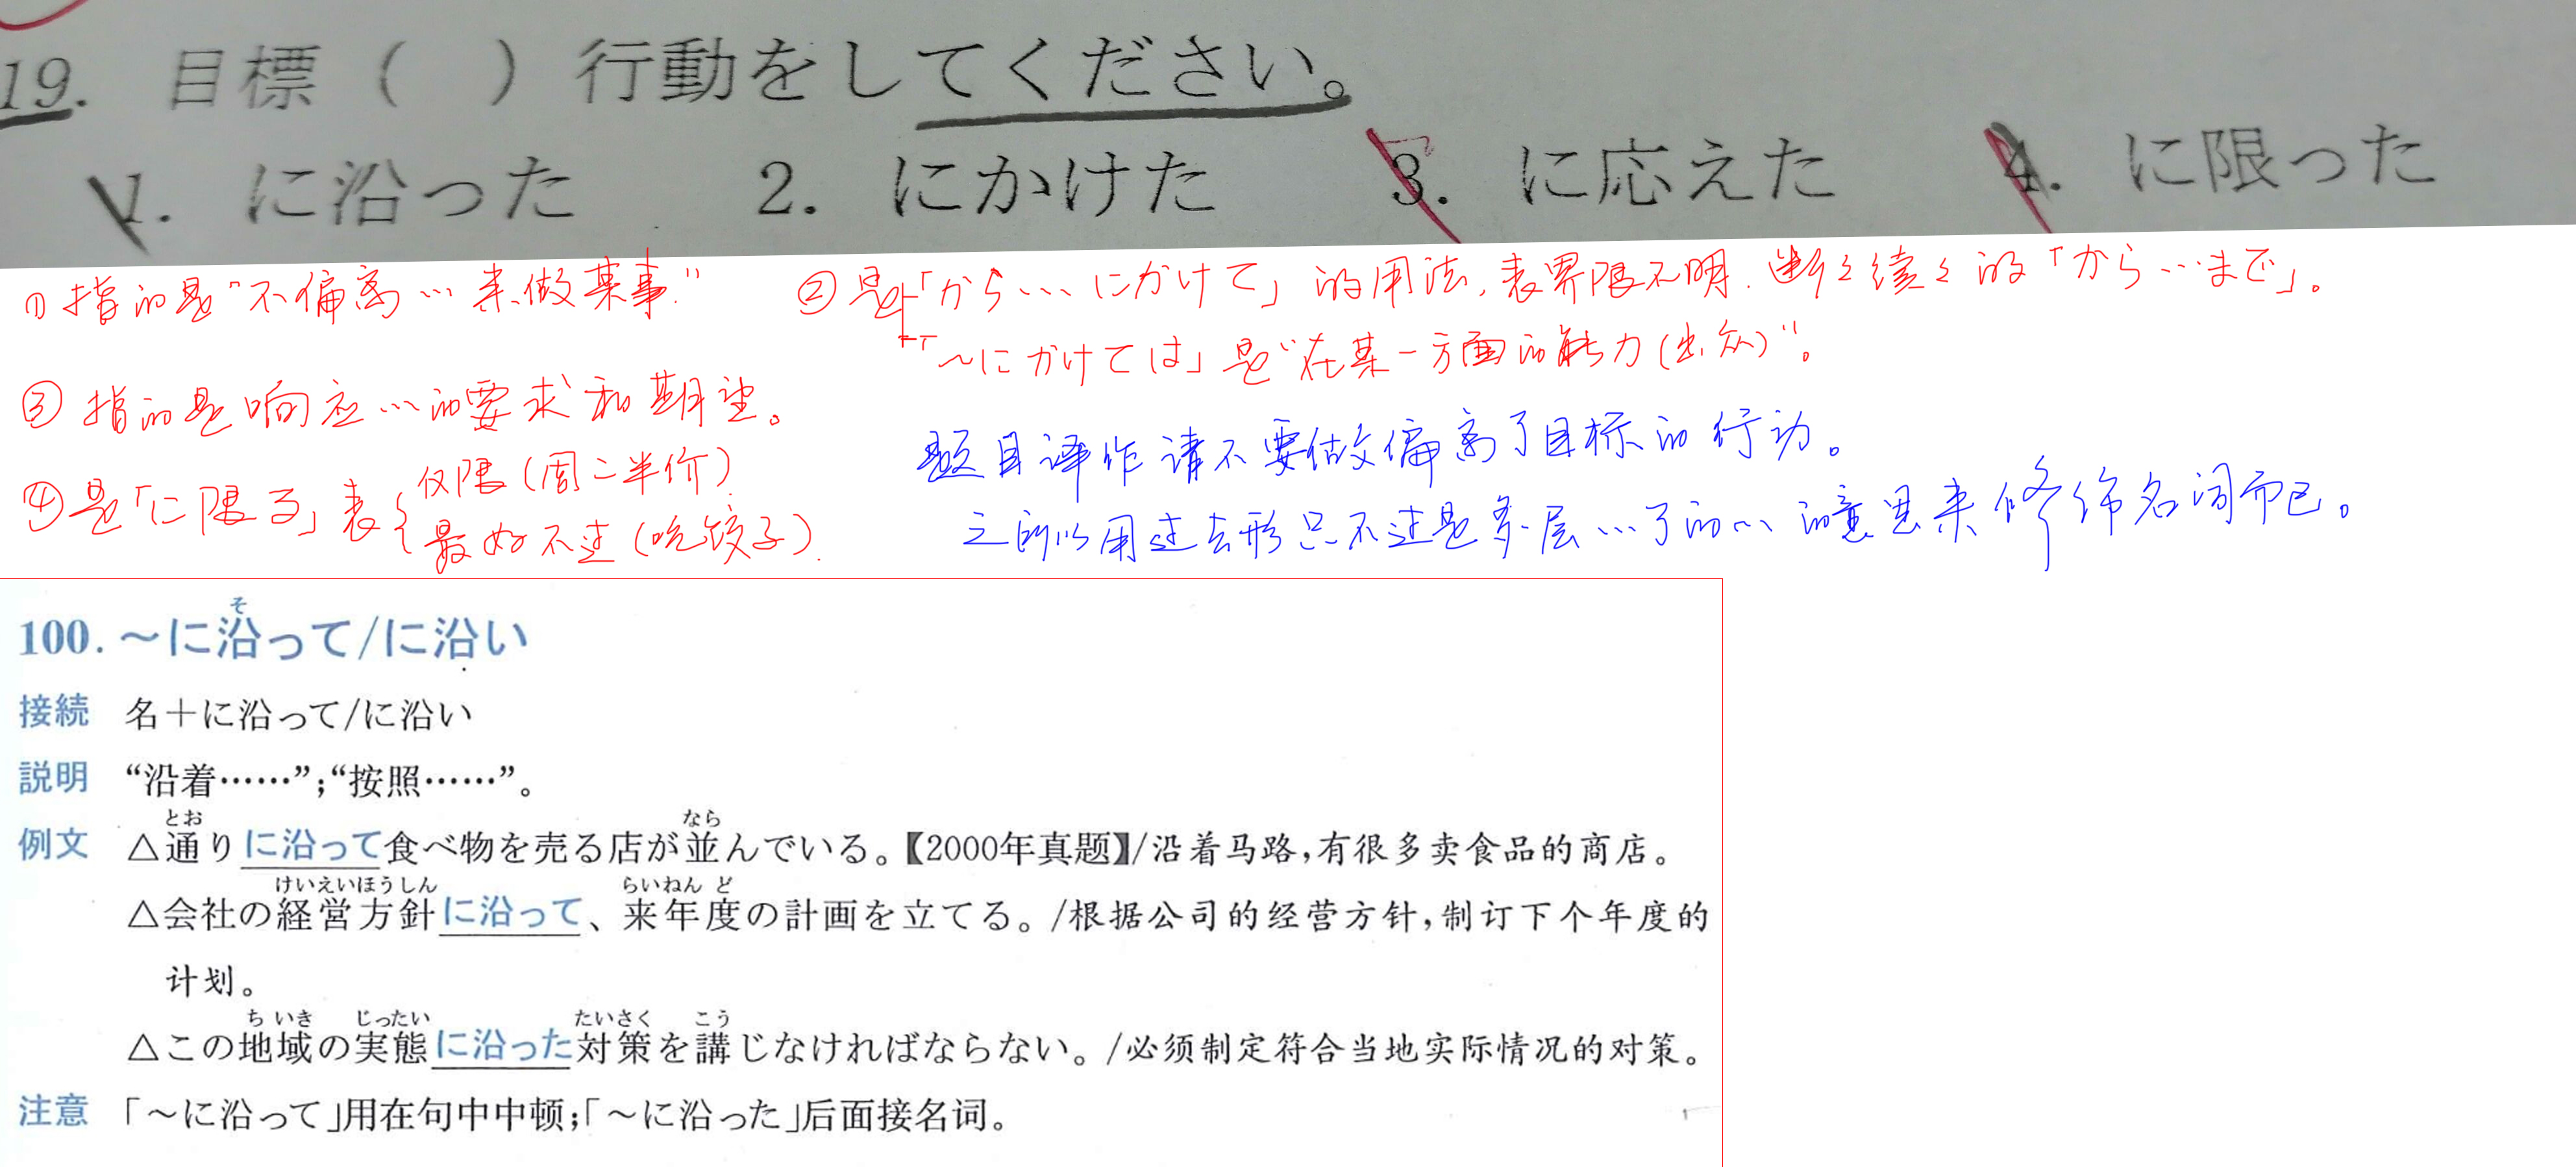 19. 目標（ ）行動をしてください。
1. に沿った 2. にかけた 3. に応えた 4. に限った
① 指的是“不偏离…来做某事.” ② 是「から…にかけて」的用法,表界限不明.断々续々的「から…まで」。
「～にかけては」是“在某一方面的能力(出众)”。
③ 指的是响应…的要求和期望。
④是「に限る」表{仅限(周二半价)
最好不过(吃饺子).
题目译作请不要做偏离了目标的行动。
之所以用过去形只不过是多一层…了的…的意思来修饰名词而已。
そ
100. ～に沿って/に沿い
接続 名＋に沿って/に沿い
説明 “沿着……”;“按照……”。
とお なら
例文 △通りに沿って食べ物を売る店が並んでいる。【2000年真题】/沿着马路,有很多卖食品的商店。
けいえいほうしん らいねん ど
△会社の経営方針に沿って、来年度の計画を立てる。/根据公司的经营方针,制订下个年度的
计划。
ち いき じったい たいさく こう
△この地域の実態に沿った対策を講じなければならない。/必须制定符合当地实际情况的对策。
注意 「～に沿って」用在句中中顿;「～に沿った」后面接名词。